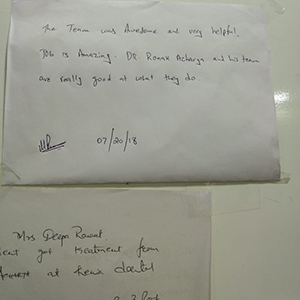 The Team was Awesome and very helpful.
Job is Amazing. DR. Ronak Acharya and his team
are really good at what they do.
07/20/18
Mrs Deepa Rawat
got treatment from
at dental